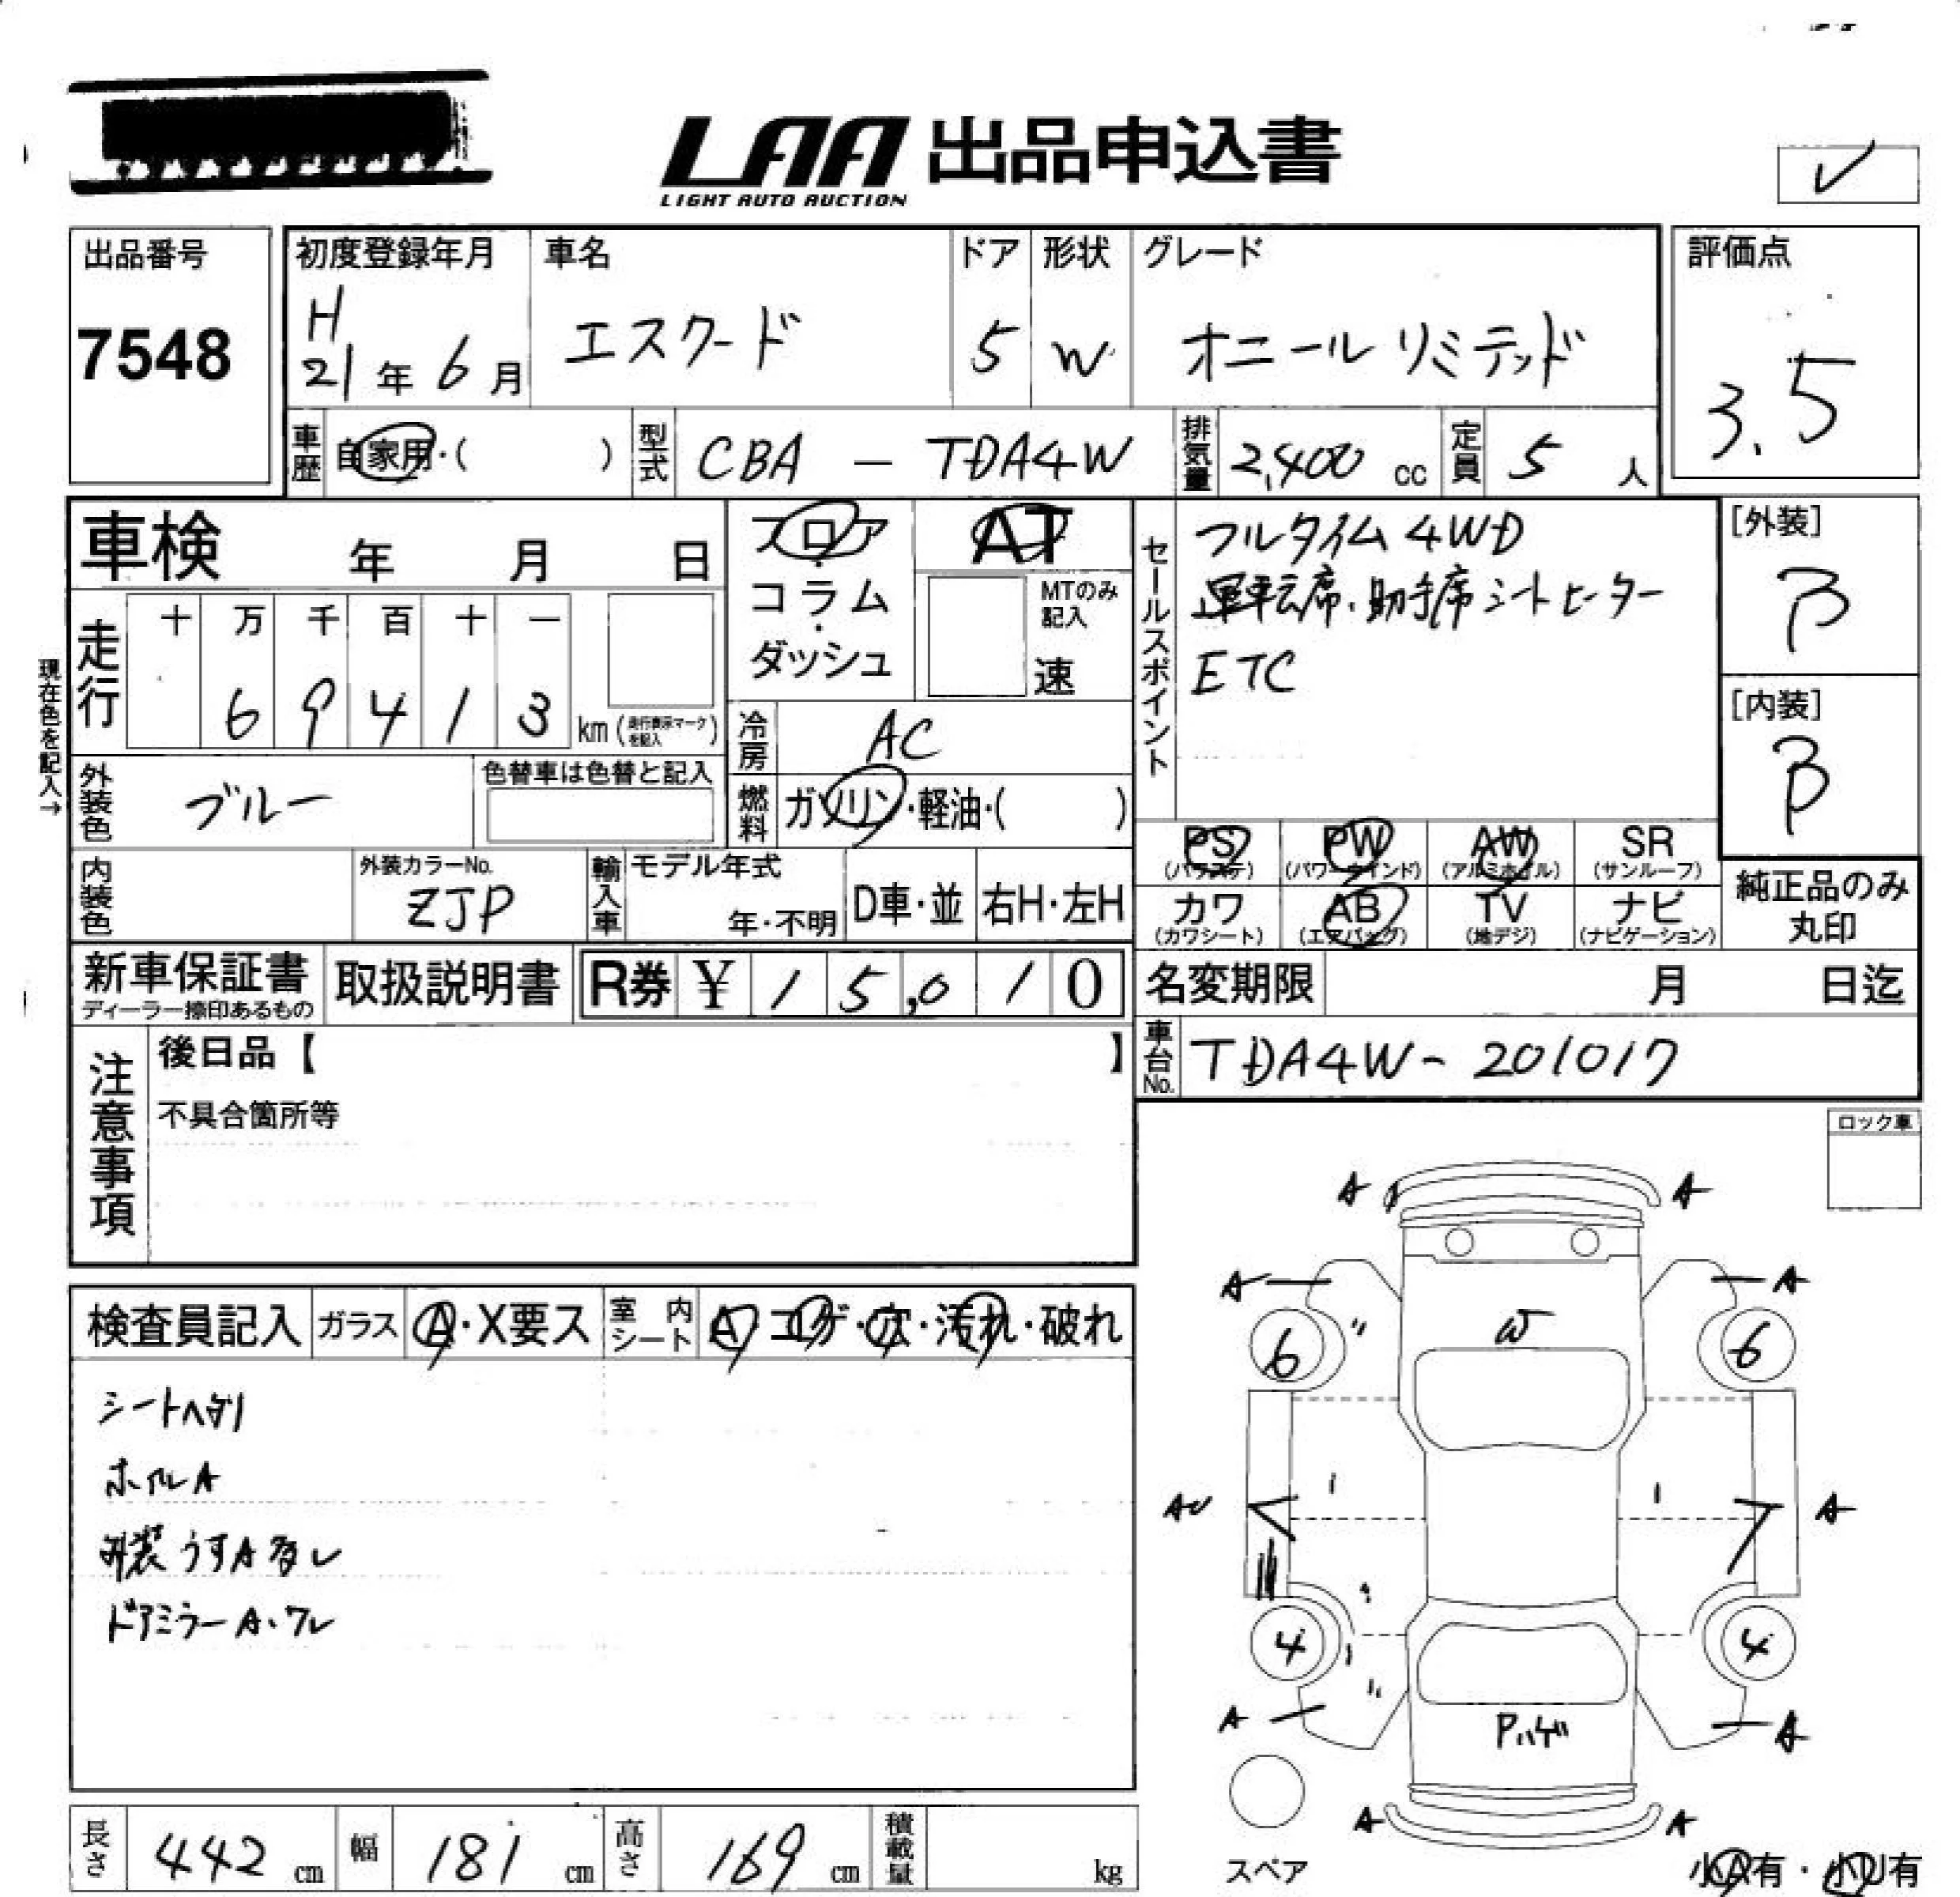 LAA 出品申込書
LIGHT AUTO AUCTION
出品番号
7548
初度登録年月
H
21年 6月
車名
エスクード
ドア
5
形状
W
グレード
オニールリミテッド
評価点
3.5
車歴 自家用・( )
型式 CBA - TDA4W
排気量 2,400 cc
定員 5 人
車検 年 月 日
フロア
・
コラム
・
ダッシュ
AT
MTのみ記入
速
走行
十 万 千 百 十 一
6 9 4 1 3 km (走行表示マークを記入)
現在色を記入→
冷房 AC
外装色 ブルー
色替車は色替と記入
燃料 ガソリン・軽油・( )
内装色
外装カラーNo.
ZJP
輸入車 モデル年式
年・不明
D車・並
右H・左H
セールスポイント
フルタイム 4WD
運転席、助手席シートヒーター
ETC
[外装]
B
[内装]
B
PS (パワステ) PW (パワーウインド) AW (アルミホイル) SR (サンルーフ)
カワ (カワシート) AB (エアバッグ) TV (地デジ) ナビ (ナビゲーション)
純正品のみ
丸印
新車保証書
ディーラー捺印あるもの
取扱説明書
R券 ¥ 1 5,0 1 0
名変期限 月 日迄
車台No. TDA4W-201017
注意事項
後日品【 】
不具合箇所等
ロック車
検査員記入 ガラス A・X要ス 室内シート A・コゲ・穴・汚れ・破れ
シートヘタリ
ホイルA
外装うすA多し
ドアミラーA・ワレ
A A
A A
6 W 6
AU A
4 4
A Pハゲ A
A A
スペア
小A有・小U有
長さ 442 cm
幅 181 cm
高さ 169 cm
積載量 kg